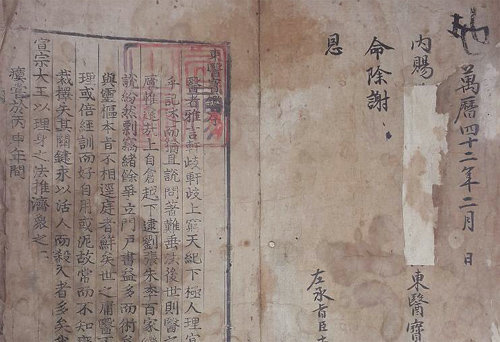 萬曆四十二年二月 日
內賜 東醫寶
命除謝
恩
左承旨臣
東醫寶鑑序
醫者雅言軒岐軒岐上窮天紀下極人理宜
乎記述而猶且說問著難垂法後世則醫
遠矣上自倉越下逮劉張朱李百家繼
說紛然剽竊緖餘爭立門戶書益多而術
與靈樞本旨不相逕庭者鮮矣世之庸醫不
理或倍經訓而好自用或泥故常而不知變
裁擇失其關鍵求以活人而殺人者多矣我
宣宗大王以理身之法推濟衆之
瘼嘗於丙申年間